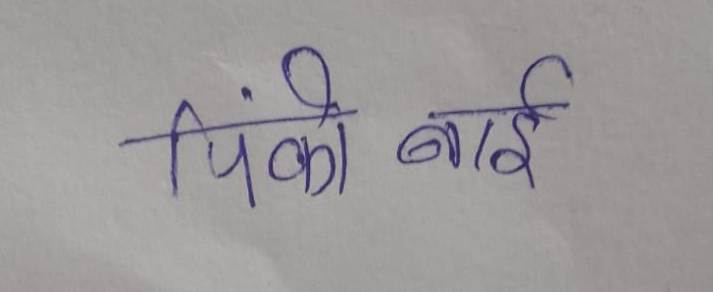 पिंकी बाई